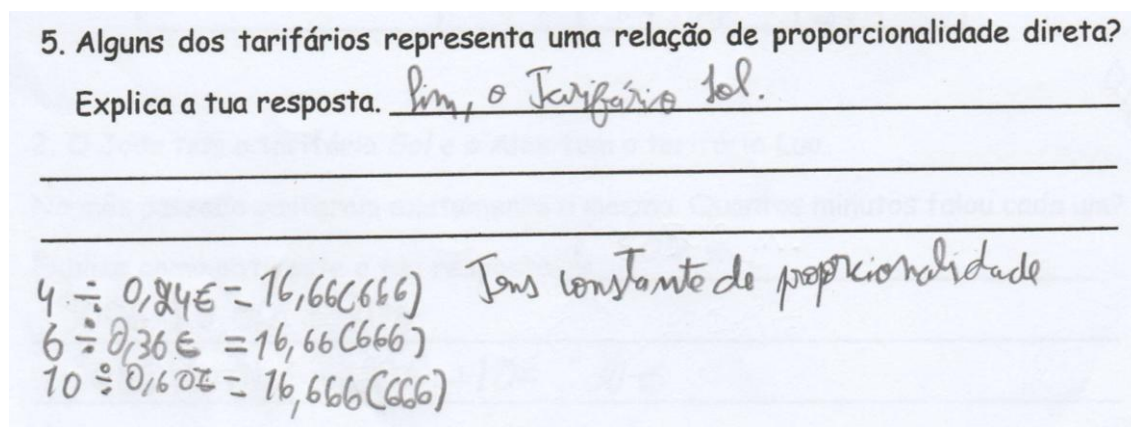 5. Alguns dos tarifários representa uma relação de proporcionalidade direta?
Explica a tua resposta. Sim, o Tarifário Sol.
4 ÷ 0,24€ = 16,66(666) Tem constante de proporcionalidade
6 ÷ 0,36€ = 16,66(666)
10 ÷ 0,60€ = 16,666(666)